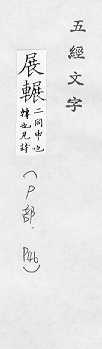 五經文字
展輾 二同申也
轉也見詩
(尸部. P46)